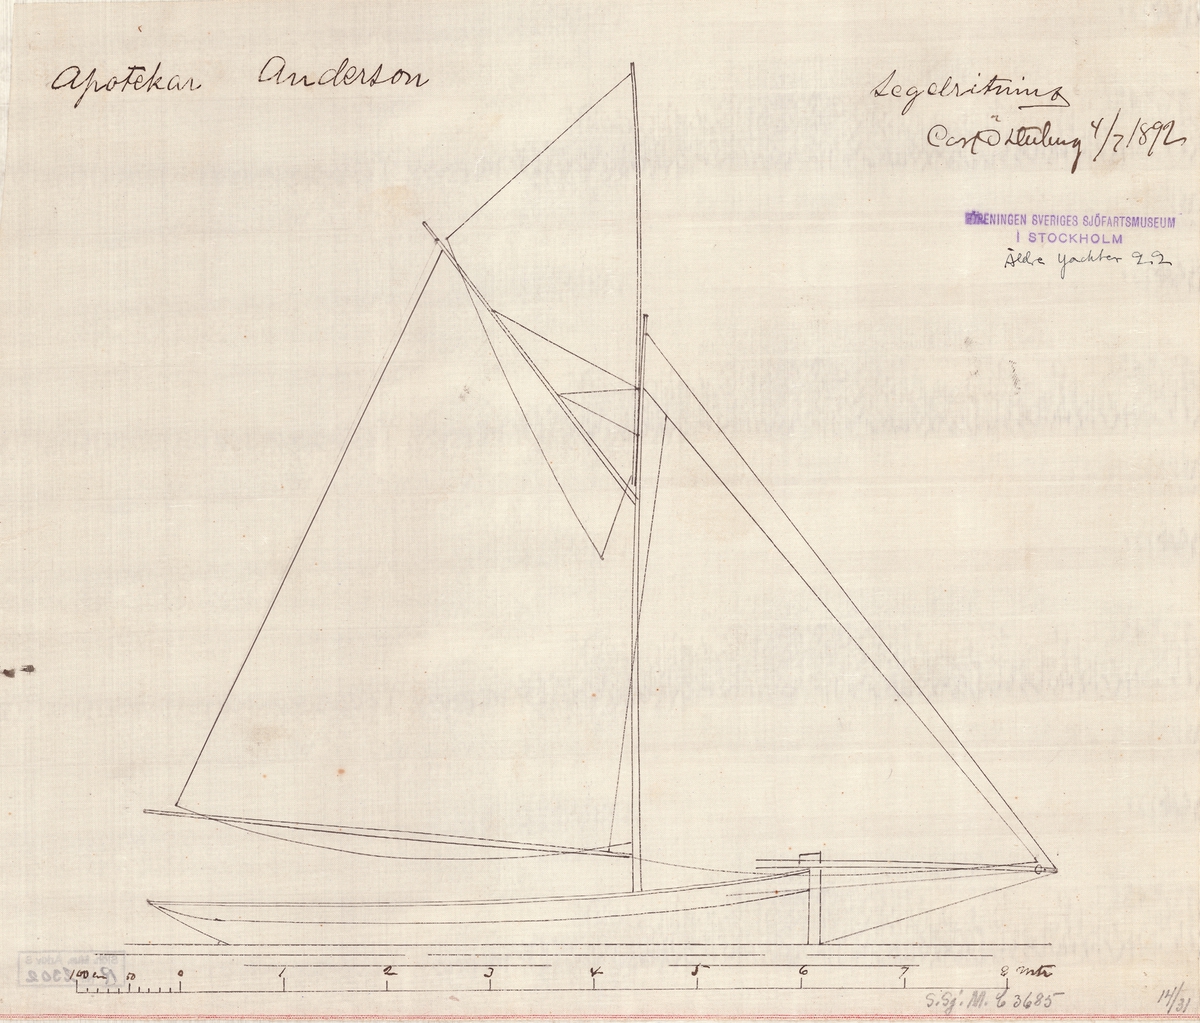 Apotekar Anderson
Segelritning
Carl Ö 4/7 1892
FÖRENINGEN SVERIGES SJÖFARTSMUSEUM
I STOCKHOLM
Äldre Yachter 2.2
100 cm 50 0 1 2 3 4 5 6 7 8 mtr
S.Sj.M. 3685
14/31